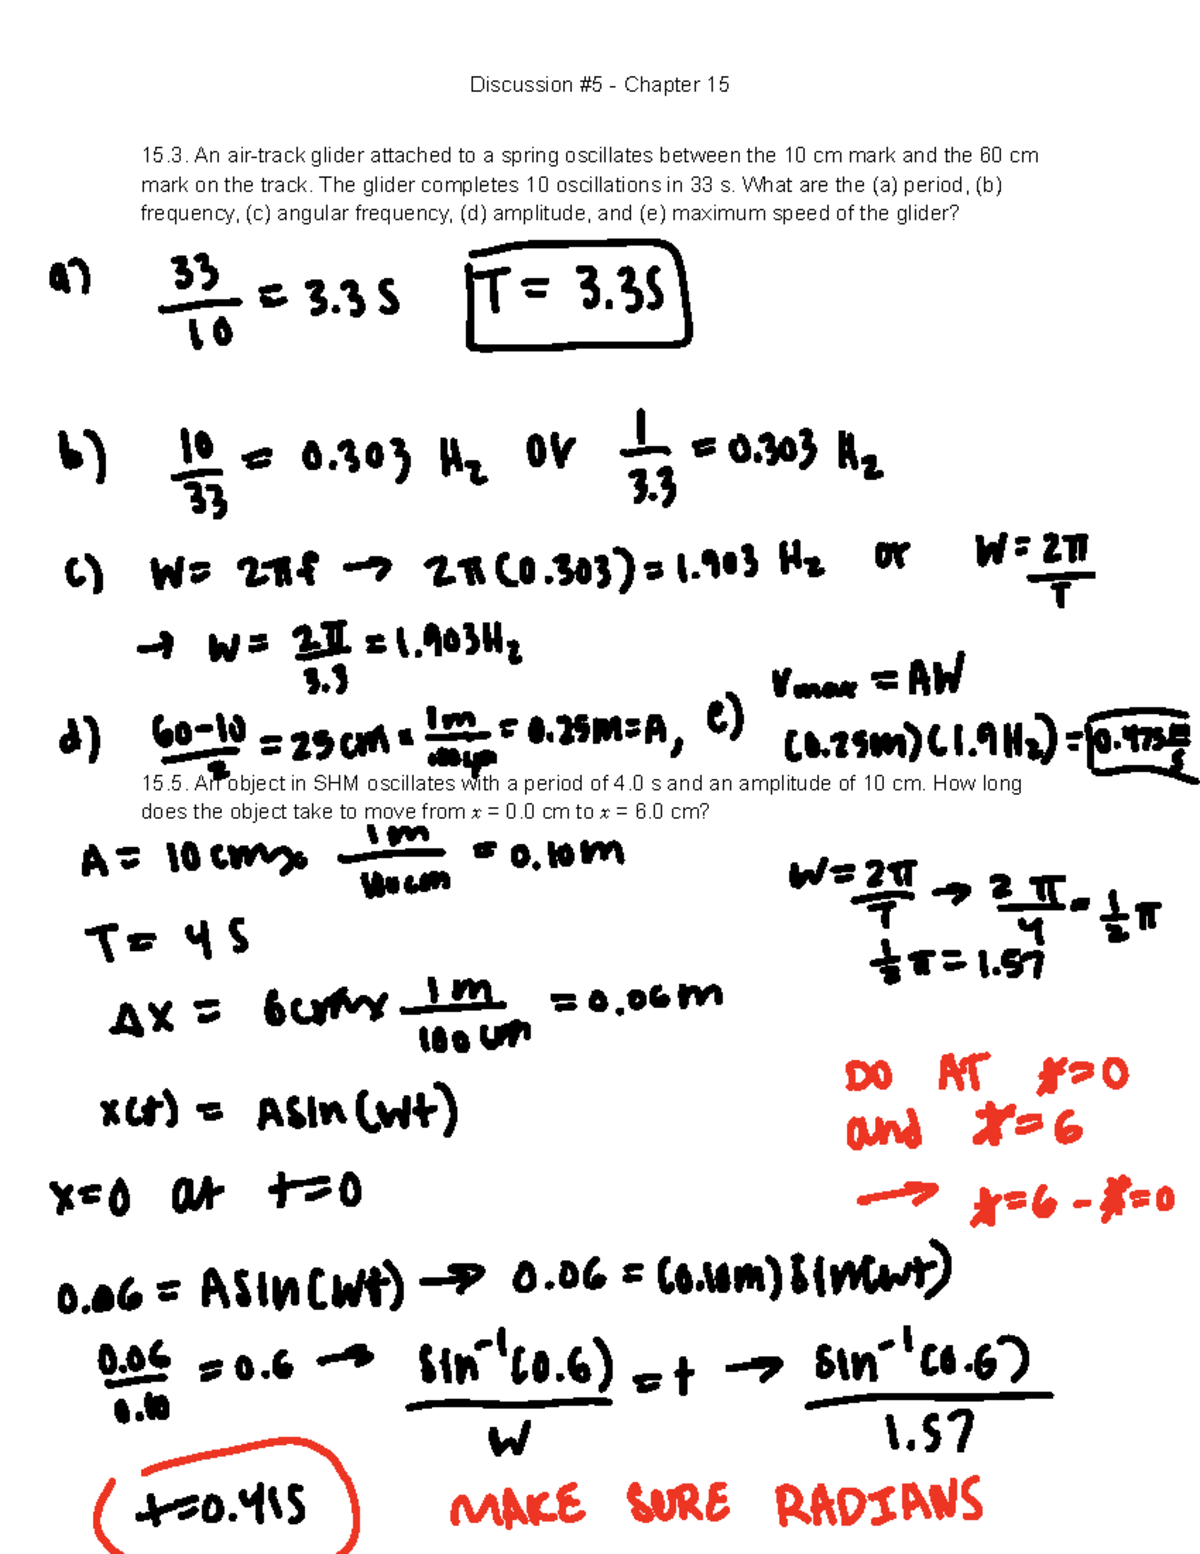 Discussion #5 - Chapter 15
15.3. An air-track glider attached to a spring oscillates between the 10 cm mark and the 60 cm
mark on the track. The glider completes 10 oscillations in 33 s. What are the (a) period, (b)
frequency, (c) angular frequency, (d) amplitude, and (e) maximum speed of the glider?
a) 33/10 = 3.3 S T = 3.3S
b) 10/33 = 0.303 Hz or 1/3.3 = 0.303 Hz
c) W = 2πf → 2π(0.303) = 1.903 Hz or W = 2π/T
→ W = 2π/3.3 = 1.903Hz
d) 60-10/2 = 25cm × 1m/100cm = 0.25M = A, e) Vmax = AW
(0.25m)(1.9Hz) = 0.475 m/s
15.5. An object in SHM oscillates with a period of 4.0 s and an amplitude of 10 cm. How long
does the object take to move from x = 0.0 cm to x = 6.0 cm?
A = 10cm × 1m/100cm = 0.10m
W = 2π/T → 2π/4 = 1/2 π
T = 4 S
1/2 π = 1.57
Δx = 6cm × 1m/100cm = 0.06m
DO AT x=0
and x=6
→ x=6 - x=0
x(t) = ASIn(Wt)
x=0 at t=0
0.06 = ASIn(Wt) → 0.06 = (0.10m)SIn(wt)
0.06/0.10 = 0.6 → SIn⁻¹(0.6)/W = t → SIn⁻¹(0.6)/1.57
t=0.41S MAKE SURE RADIANS